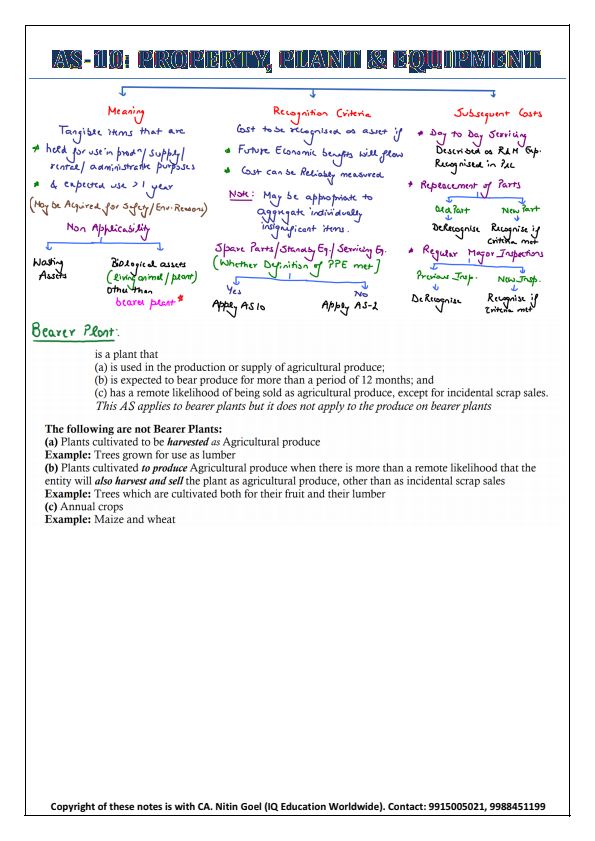 AS-10: PROPERTY, PLANT & EQUIPMENT
Meaning
Tangible items that are
* held for use in prodn/supply/
rental/administrative purposes
* & expected use > 1 year
(May be Acquired for Safety/Env. Reasons)
Non Applicability
Wasting
Assets
Biological assets
(living animal/plant)
other than
bearer plant *
Recognition Criteria
Cost to be recognised as asset if
* Future Economic benefits will flow
* Cost can be Reliably measured
Note: May be appropriate to
aggregate individually
insignificant items.
Spare Parts/Standby Eq./Servicing Eq.
(Whether Definition of PPE met]
Yes
No
Apply AS10
Apply AS-2
Subsequent Costs
* Day to Day Servicing
Described as R&M Exp.
Recognised in P&L
* Replacement of Parts
Old Part
New Part
DeRecognise
Recognise if
criteria met
* Regular Major Inspections
Previous Insp.
New Insp.
DeRecognise
Recognise if
Criteria met
Bearer Plant:
is a plant that
(a) is used in the production or supply of agricultural produce;
(b) is expected to bear produce for more than a period of 12 months; and
(c) has a remote likelihood of being sold as agricultural produce, except for incidental scrap sales.
This AS applies to bearer plants but it does not apply to the produce on bearer plants
The following are not Bearer Plants:
(a) Plants cultivated to be harvested as Agricultural produce
Example: Trees grown for use as lumber
(b) Plants cultivated to produce Agricultural produce when there is more than a remote likelihood that the
entity will also harvest and sell the plant as agricultural produce, other than as incidental scrap sales
Example: Trees which are cultivated both for their fruit and their lumber
(c) Annual crops
Example: Maize and wheat
Copyright of these notes is with CA. Nitin Goel (IQ Education Worldwide). Contact: 9915005021, 9988451199